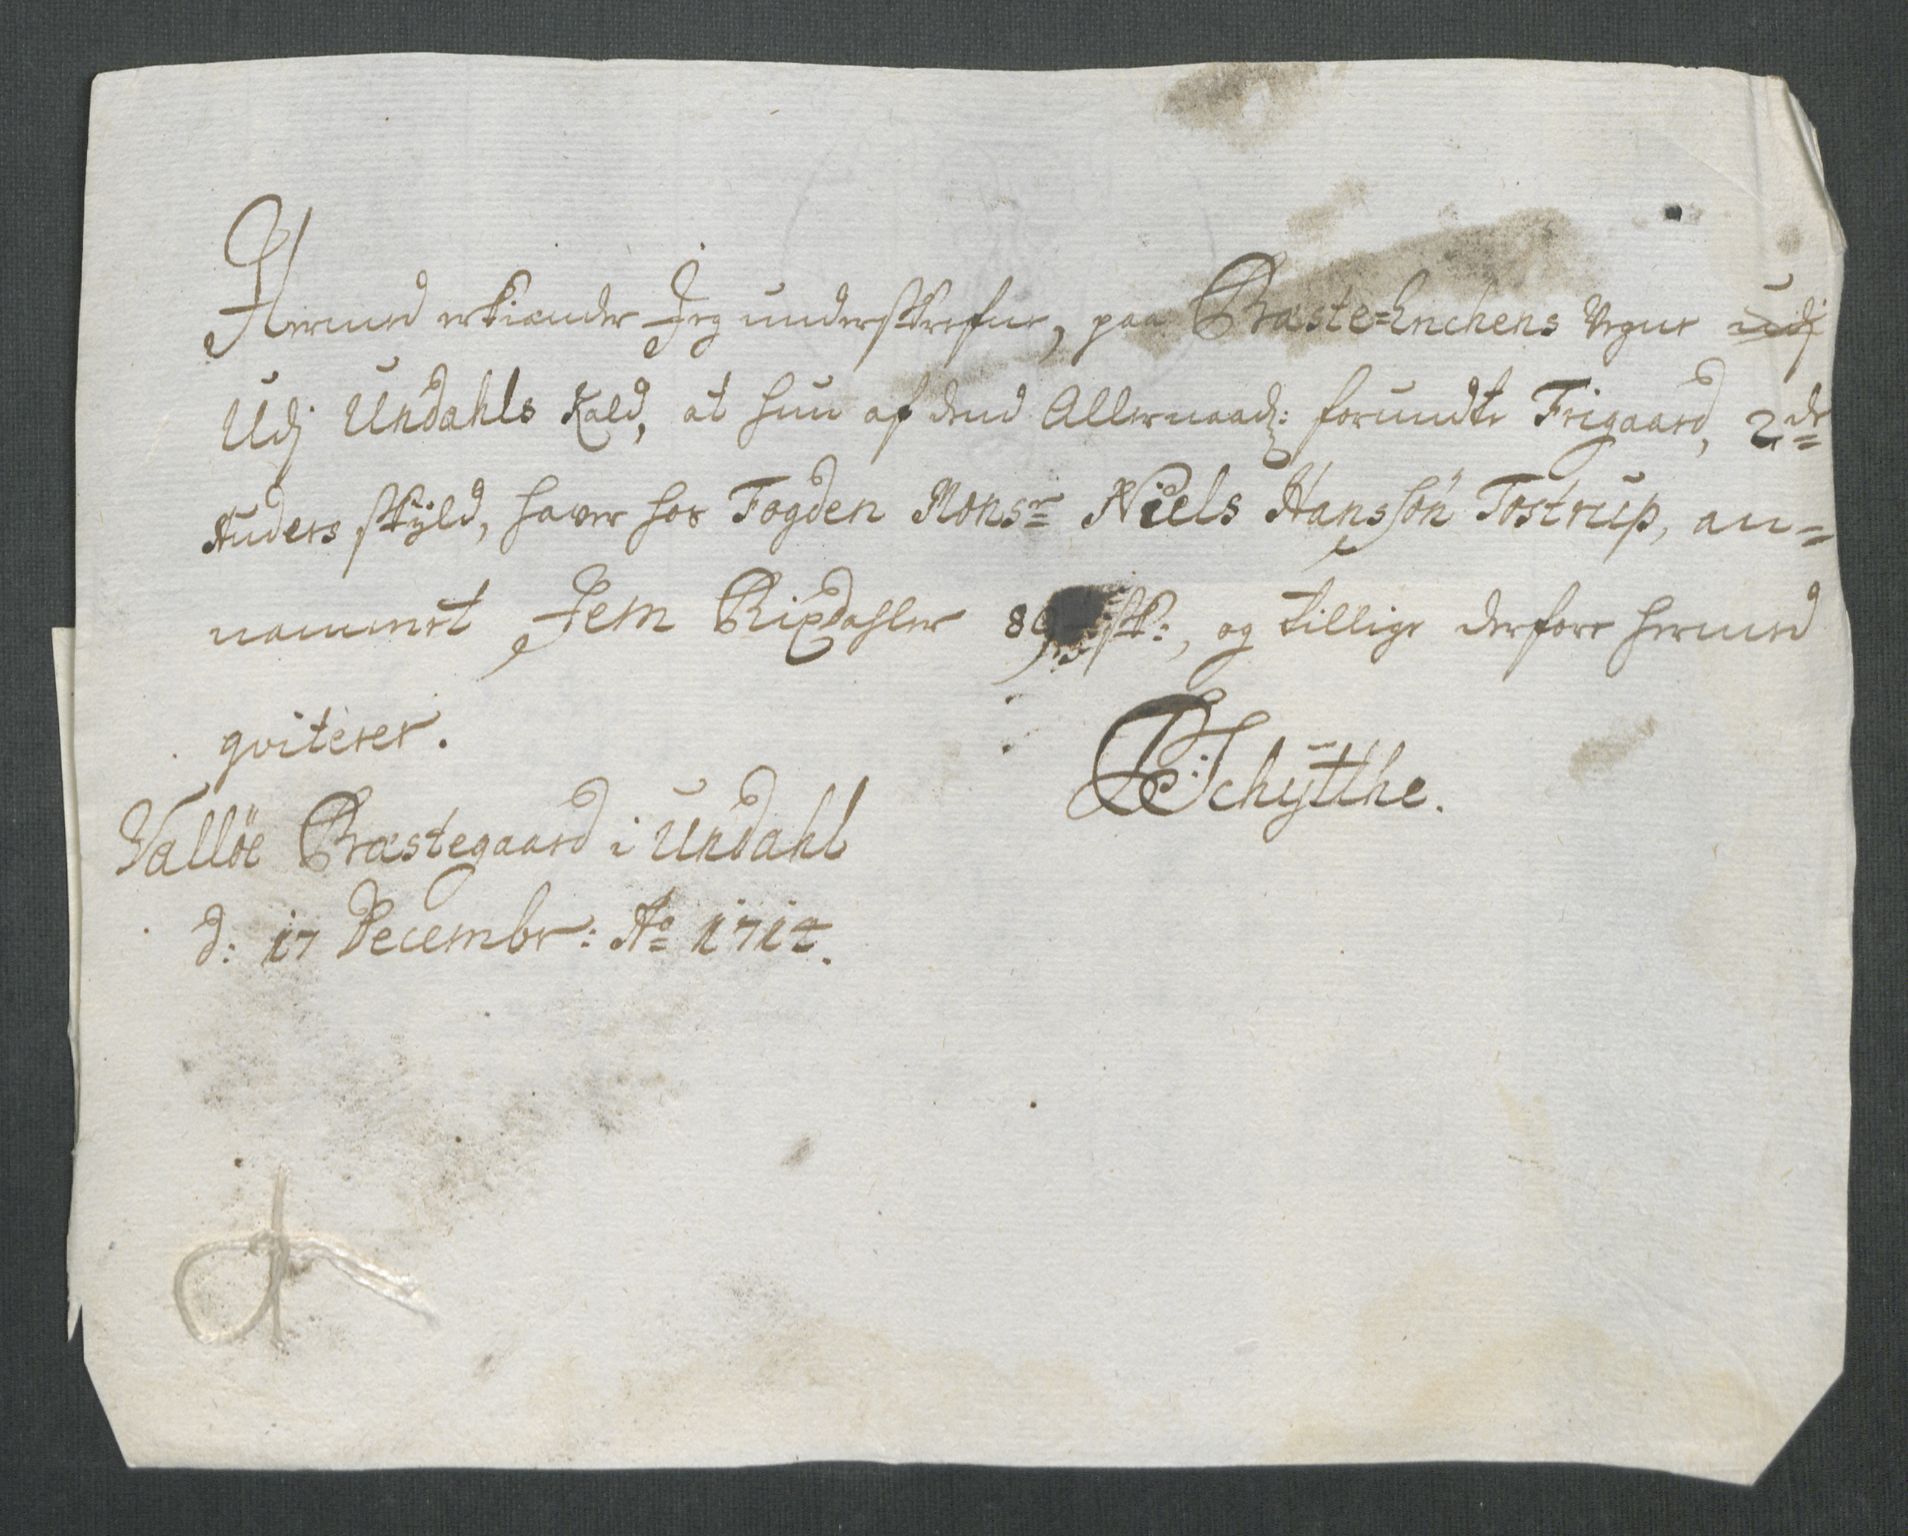 Hermed erkiænder Jeg underskrefne, paa Præste=Enchens Vegne udj
Udj Undahls Kald, at hun af dend Allernaadz: forundte Frigaard, 2de
Huders skÿld, haver hos Fogden Monsr Niels Hanssön Tostrup, an=
nammet Fem Rixdahler sk:, og tillige derfore hermed
qviterer.
PSchÿtthe.
Valløe Præstegaard i Undahl
d: 17 Decembr: Ao 1712.